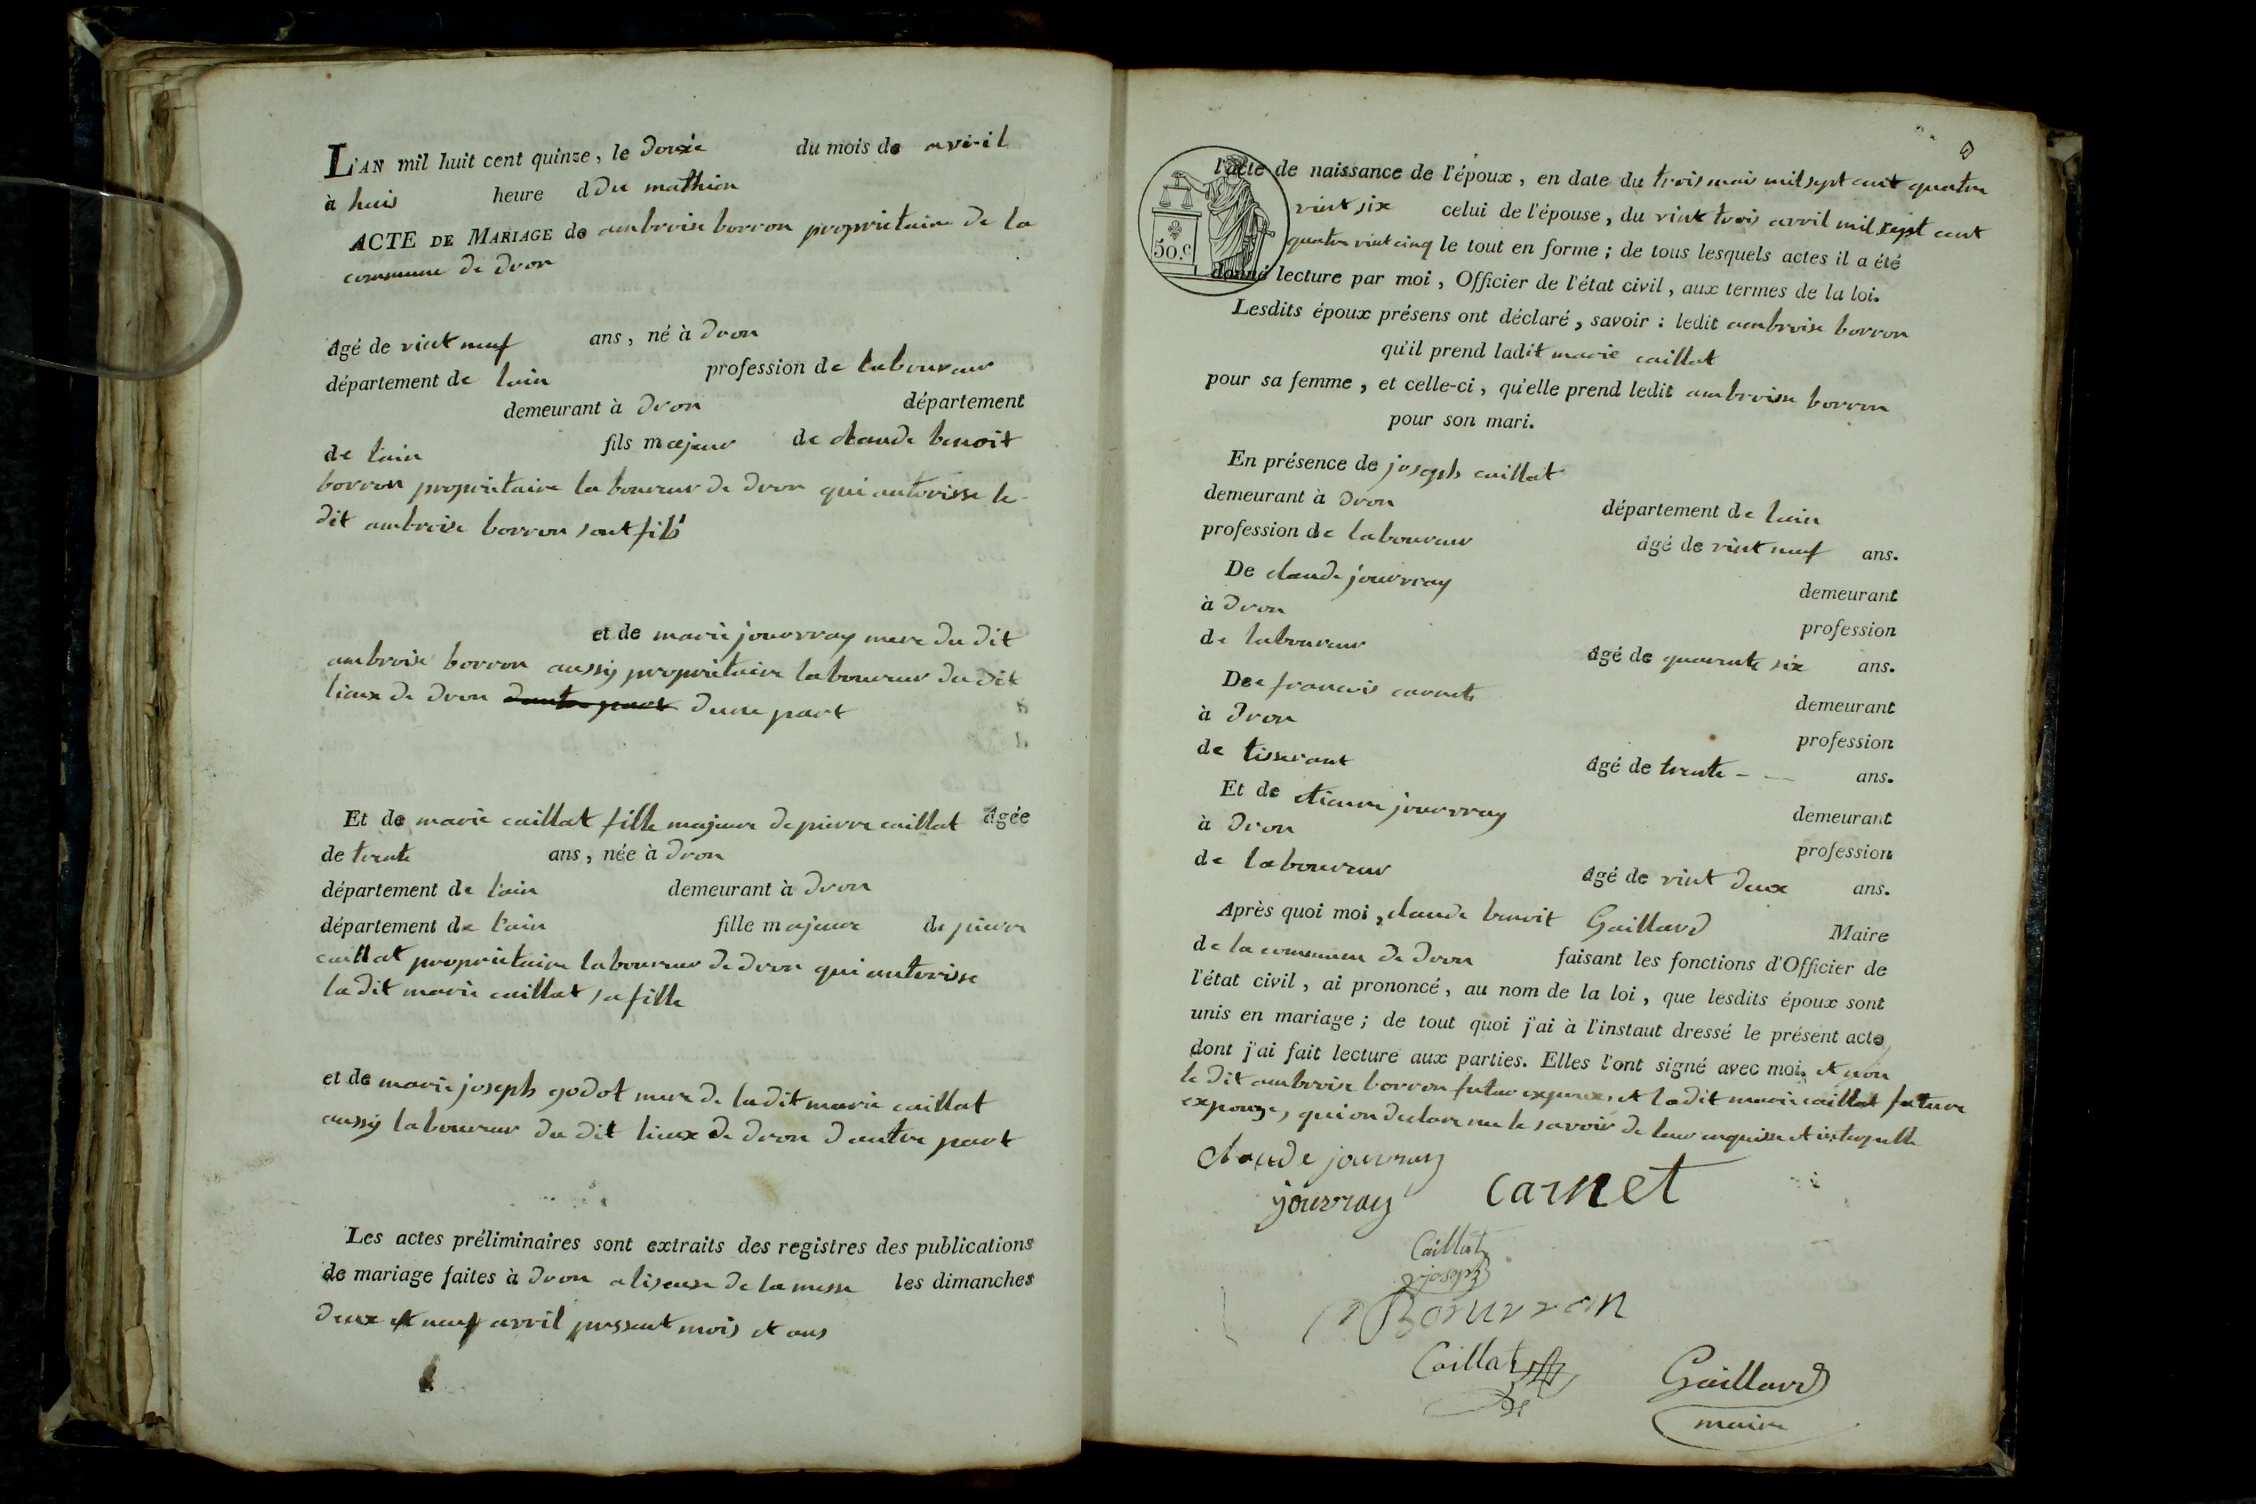 L'AN mil huit cent quinze, le douxie du mois de avril
à huis heure d du mathien
ACTE DE MARIAGE de ambroise borron proprietaire de la
commune de dron
âgé de vint neuf ans, né à dron
département de lain profession de laboureur
demeurant à dron département
de lain fils majeur de claude benoit
borron proprietaire laboureur de dron qui autorisse le
dit ambroise borron sont fils
et de marie jouvray mere du dit
ambroise borron aussy proprietaire laboureur du dit
lieux de dron dautre part dune part
Et de marie caillat fille majeure de pierre caillat âgée
de trente ans, née à dron
département de l'ain demeurant à dron
département de l'ain fille majeure de pierre
caillat proprietaire laboureur de dron qui autorisse
la dit marie caillat sa fille
et de marie joseph godot mere de la dit marie caillat
aussy laboureur du dit lieux de dron d autre part
Les actes préliminaires sont extraits des registres des publications
de mariage faites à dron a liseuse de la messe les dimanches
deux et neuf avril pressant mois et ans
50.c
l'acte de naissance de l'époux, en date du trois mais mil sept cent quatre
vint six celui de l'épouse, du vint trois avril mil sept cent
quatre vint cinq le tout en forme; de tous lesquels actes il a été
donné lecture par moi, Officier de l'état civil, aux termes de la loi.
Lesdits époux présens ont déclaré, savoir : ledit ambroise borron
qu'il prend ladit marie caillat
pour sa femme, et celle-ci, qu'elle prend ledit ambroise borron
pour son mari.
En présence de joseph caillat
demeurant à dron département de lain
profession de laboureur âgé de vint neuf ans.
De claude jouvray demeurant
à dron profession
de laboureur âgé de quarante six ans.
De francois carnet demeurant
à dron profession
de tisserant âgé de trente ans.
Et de etienne jouvray demeurant
à dron profession
de laboureur âgé de vint deux ans.
Après quoi moi, claude benoit Gaillard Maire
de la commune de dron faisant les fonctions d'Officier de
l'état civil, ai prononcé, au nom de la loi, que lesdits époux sont
unis en mariage; de tout quoi j'ai à l'instaut dressé le présent acte
dont j'ai fait lecture aux parties. Elles l'ont signé avec moi, et non
le dit ambroise borron futur expoux, et la dit marie caillat future
expouze, qui on declare ne le savoir de leur enquisse et interpelle
claude jouvray
jouvray carnet
Caillat
joseph
Bourron
Caillat
Gaillard
maire